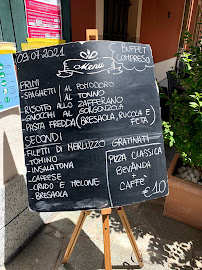 09.07.2021
Menù
BUFFET
COMPRESO
PRIMI
-SPAGHETTI AL POMODORO
AL TONNO
-RISOTTO ALLO ZAFFERANO
-GNOCCHI AL GORGONZOLA
-PASTA FREDDA (BRESAOLA, RUCOLA E
FETA)
SECONDI
-FILETTI DI MERLUZZO GRATINATI
-TOMINO
-INSALATONA
-CAPRESE
-CRUDO E MELONE
-BRESAOLA
PIZZA CLASSICA
BEVANDA
CAFFE'
€10